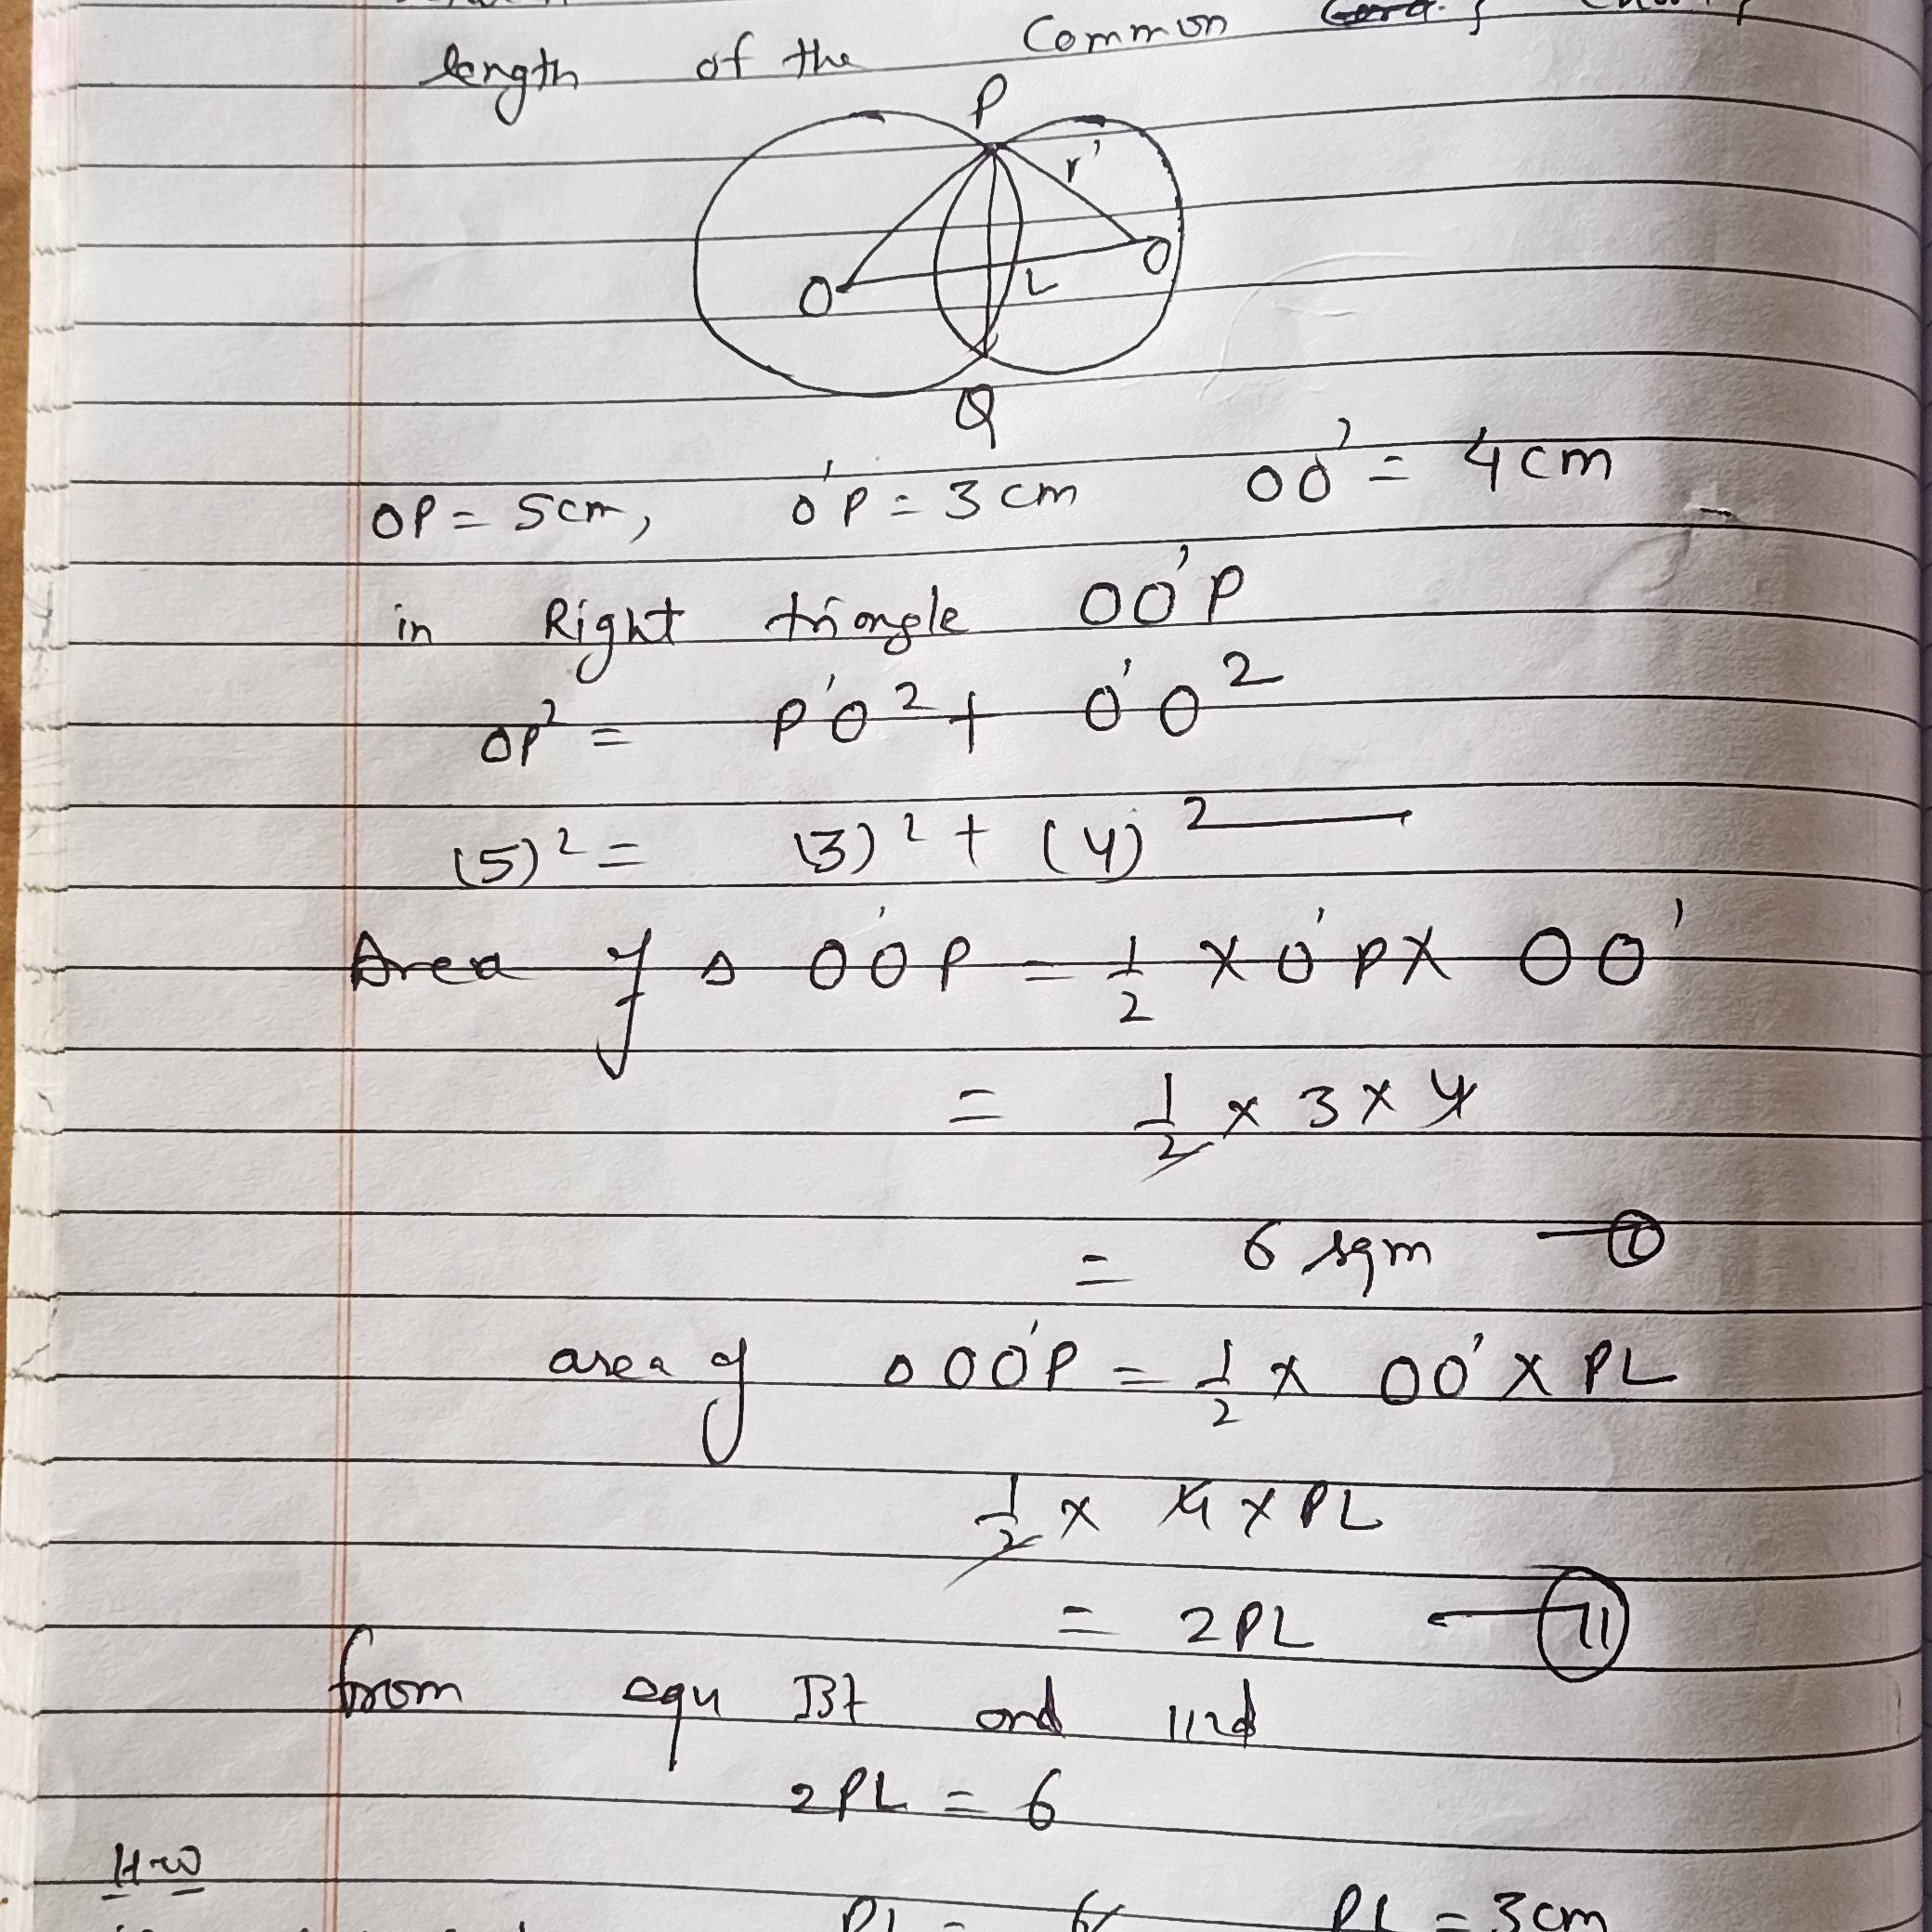 length of the Common
P
r'
O
O
L
Q
OP = 5cm, O'P = 3 cm OO' = 4cm
in Right triangle OO'P
OP² = P'O² + O'O²
(5)² = (3)² + (4)²
Area of △ OO'P = 1/2 × O'P × OO'
= 1/2 × 3 × 4
= 6 sqm — ①
area of △ OO'P = 1/2 × OO' × PL
1/2 × 4 × PL
= 2PL — ⑪
from equ Ist and IInd
2PL = 6
H.W
PL = 6 PL = 3cm